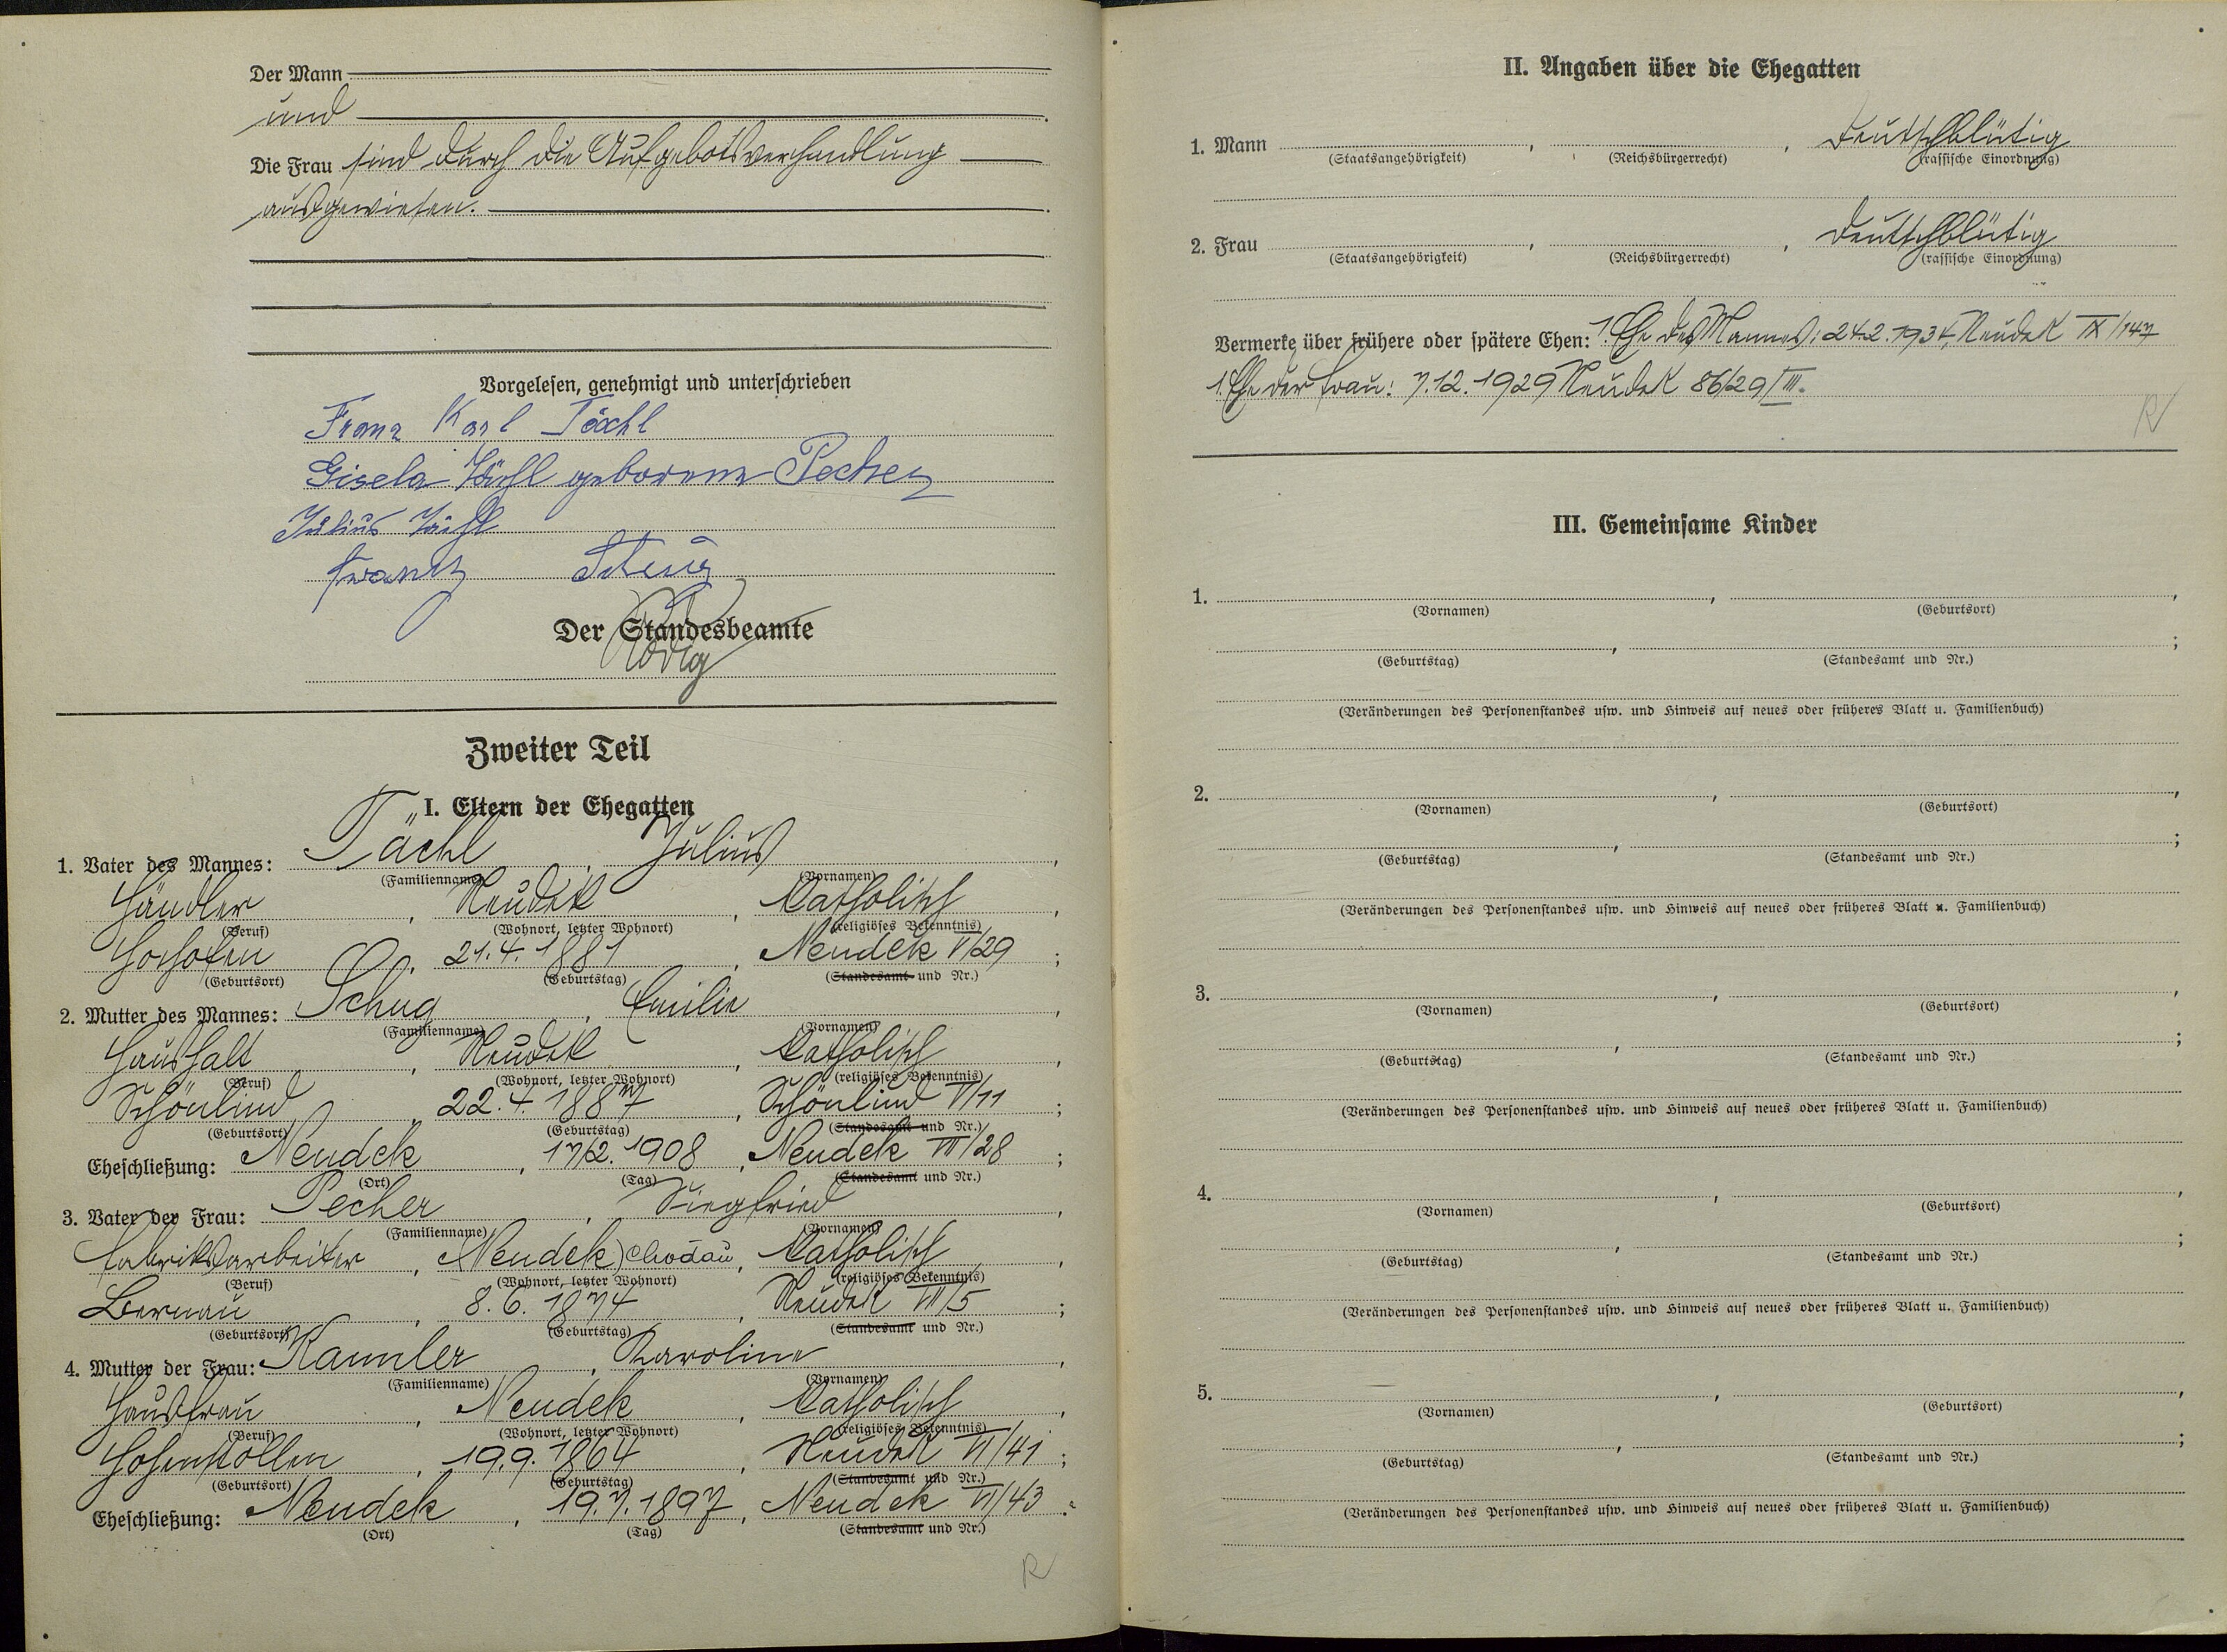 Der Mann
und
Die Frau sind durch die Aufgebotsverhandlung
ausgewiesen.
Vorgelesen, genehmigt und unterschrieben
Franz Karl Tächl
Gisela Tächl geborene Pecher
Julius Tächl
Franz
Der Standesbeamte
Zweiter Teil
I. Eltern der Ehegatten
1. Vater des Mannes: Tächl, Julius,
(Familienname) (Vornamen)
Händler, Neudek, Katholisch,
(Beruf) (Wohnort, letzter Wohnort) (religiöses Bekenntnis)
Hochofen, 21.4.1881, Neudek V/29;
(Geburtsort) (Geburtstag) (Standesamt und Nr.)
2. Mutter des Mannes: Schug, Emilie,
(Familienname) (Vornamen)
Haushalt, Neudek, Katholisch,
(Beruf) (Wohnort, letzter Wohnort) (religiöses Bekenntnis)
Schönlind, 22.4.1887, Schönlind V/11;
(Geburtsort) (Geburtstag) (Standesamt und Nr.)
Eheschließung: Neudek, 1908, Neudek VII/28;
(Ort) (Tag) (Standesamt und Nr.)
3. Vater der Frau: Pecher, Siegfried,
(Familienname) (Vornamen)
Fabriksarbeiter, Neudek) Chodau, Katholisch,
(Beruf) (Wohnort, letzter Wohnort) (religiöses Bekenntnis)
Bernau, 8.6.1874, Neudek VII/5;
(Geburtsort) (Geburtstag) (Standesamt und Nr.)
4. Mutter der Frau: Kammler, Karoline,
(Familienname) (Vornamen)
Hausfrau, Neudek, Katholisch,
(Beruf) (Wohnort, letzter Wohnort) (religiöses Bekenntnis)
Hohenstollen, 19.9.1864, Neudek VI/41;
(Geburtsort) (Geburtstag) (Standesamt und Nr.)
Eheschließung: Neudek, 19.7.1897, Neudek VI/43.
(Ort) (Tag) (Standesamt und Nr.)
R
II. Angaben über die Ehegatten
1. Mann , , Deutschblütig
(Staatsangehörigkeit) (Reichsbürgerrecht) (rassische Einordnung)
2. Frau , , Deutschblütig
(Staatsangehörigkeit) (Reichsbürgerrecht) (rassische Einordnung)
Vermerke über frühere oder spätere Ehen: 1. Ehe des Mannes: 24.2.1934, Neudek IX/147
1. Ehe der Frau: 7.12.1929 Neudek 86/29/III.
R
III. Gemeinsame Kinder
1. , ,
(Vornamen) (Geburtsort)
, ;
(Geburtstag) (Standesamt und Nr.)
(Veränderungen des Personenstandes usw. und Hinweis auf neues oder früheres Blatt u. Familienbuch)
2. , ,
(Vornamen) (Geburtsort)
, ;
(Geburtstag) (Standesamt und Nr.)
(Veränderungen des Personenstandes usw. und Hinweis auf neues oder früheres Blatt u. Familienbuch)
3. , ,
(Vornamen) (Geburtsort)
, ;
(Geburtstag) (Standesamt und Nr.)
(Veränderungen des Personenstandes usw. und Hinweis auf neues oder früheres Blatt u. Familienbuch)
4. , ,
(Vornamen) (Geburtsort)
, ;
(Geburtstag) (Standesamt und Nr.)
(Veränderungen des Personenstandes usw. und Hinweis auf neues oder früheres Blatt u. Familienbuch)
5. , ,
(Vornamen) (Geburtsort)
, ;
(Geburtstag) (Standesamt und Nr.)
(Veränderungen des Personenstandes usw. und Hinweis auf neues oder früheres Blatt u. Familienbuch)